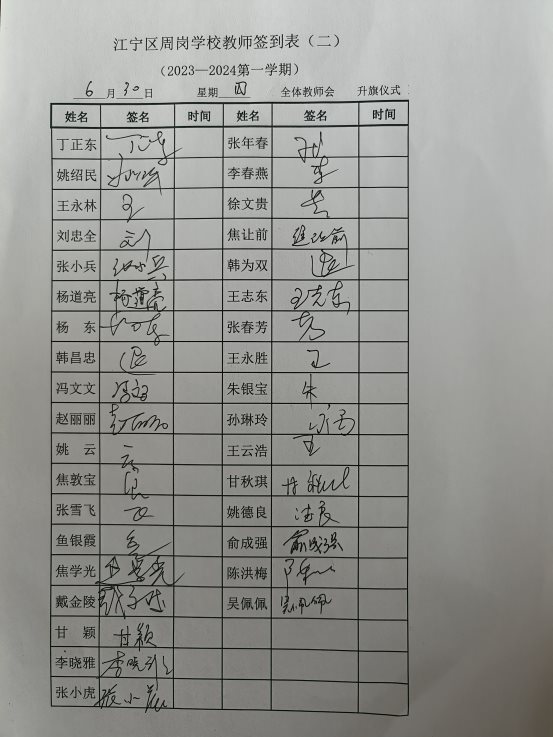 江宁区周岗学校教师签到表（二）
（2023—2024第一学期）
6月30日 星期四 全体教师会 升旗仪式
姓名 签名 时间 姓名 签名 时间
丁正东 张年春
姚绍民 李春燕 李
王永林 王 徐文贵
刘忠全 刘 焦让前 焦让前
张小兵 张小兵 韩为双
杨道亮 杨道亮 王志东 王志东
杨东 张春芳
韩昌忠 王永胜 王
冯文文 冯文 朱银宝 朱
赵丽丽 赵丽丽 孙琳玲
姚云 云 王云浩 王
焦敦宝 甘秋琪 甘秋
张雪飞 飞 姚德良 德良
鱼银霞 俞成强 俞成强
焦学光 焦学光 陈洪梅 陈
戴金陵 吴佩佩 吴佩佩
甘颖 甘颖
李晓雅 李晓雅
张小虎 张小虎